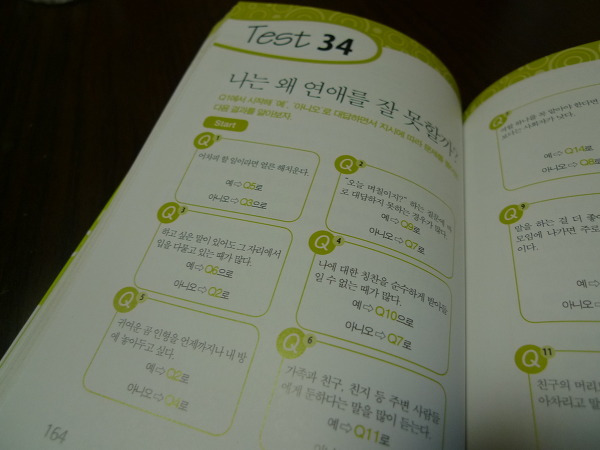 Test 34
나는 왜 연애를 잘 못할까?
Q1에서 시작해 '예', '아니오'로 대답하면서 지시에 따라
다음 결과를 알아보자.
Start
Q 1
어차피 할 일이라면 얼른 해치운다.
예⇨Q5로
아니오⇨Q3으로
Q 2
"오늘 며칠이지?" 하는 질문에
로 대답하지 못하는 경우가 많다.
예⇨Q9로
아니오⇨Q7로
Q 3
하고 싶은 말이 있어도 그 자리에서
입을 다물고 있는 때가 많다.
예⇨Q6으로
아니오⇨Q2로
Q 4
나에 대한 칭찬을 순수하게 받아들
일 수 없는 때가 많다.
예⇨Q10으로
아니오⇨Q7로
Q 5
귀여운 곰 인형을 언제까지나 내 방
에 놓아두고 싶다.
예⇨Q2로
아니오⇨Q4로
Q 6
가족과 친구, 친지 등 주변 사람들
에게 둔하다는 말을 많이 듣는다.
예⇨Q11로
164
예⇨Q14로
아니오⇨Q8로
Q 9
말을 하는 걸 더 좋아
모임에 나가면 주로
이다.
예⇨
아니오⇨
Q 11
친구의 머리
아차리고 말